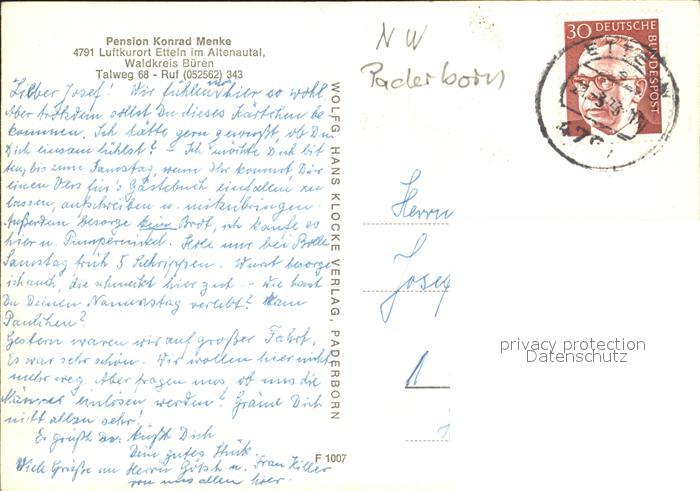 Pension Konrad Menke
4791 Luftkurort Etteln im Altenautal,
Waldkreis Büren
Talweg 68 - Ruf (052562) 343
Lieber Josef! Wir fühlen uns hier so wohl
Aber trotzdem sollst Du dieses Kärtchen be
kommen. Ich hätte gern gewußt, ob Du
Dich einsam fühlst? - Ich möchte Dich bit
ten, bis zum Samstag, wenn Ihr kommt, Dir
einen Vers für's Gästebuch einfallen zu
lassen, aufschreiben u. mitzubringen.
Außerdem besorge kein Brot, ich kaufe es
hier u. Pumpernickel. Hole nur bei
Samstag früh 5 Schrippen. Wurst besorge
ich auch, die schmeckt hier gut. - Wie hast
Du Deinen Namenstag verlebt? Kam
Paulchen?
Gestern waren wir auf großer Fahrt.
Es war sehr schön. Wir wollen hier nicht
mehr weg. Aber fragen uns, ob uns die
einlösen werden? Gräme Dich
nicht allzu sehr!
Es grüßt u. küßt Dich
Dein gutes Stück.
Viele Grüße an Herrn u. Frau
von uns allen hier.
WOLFG. HANS KLOCKE VERLAG, PADERBORN
F 1007
NW
Paderborn
30 DEUTSCHE
BUNDESPOST
ETTELN
Herrn
Josef
privacy protection
Datenschutz